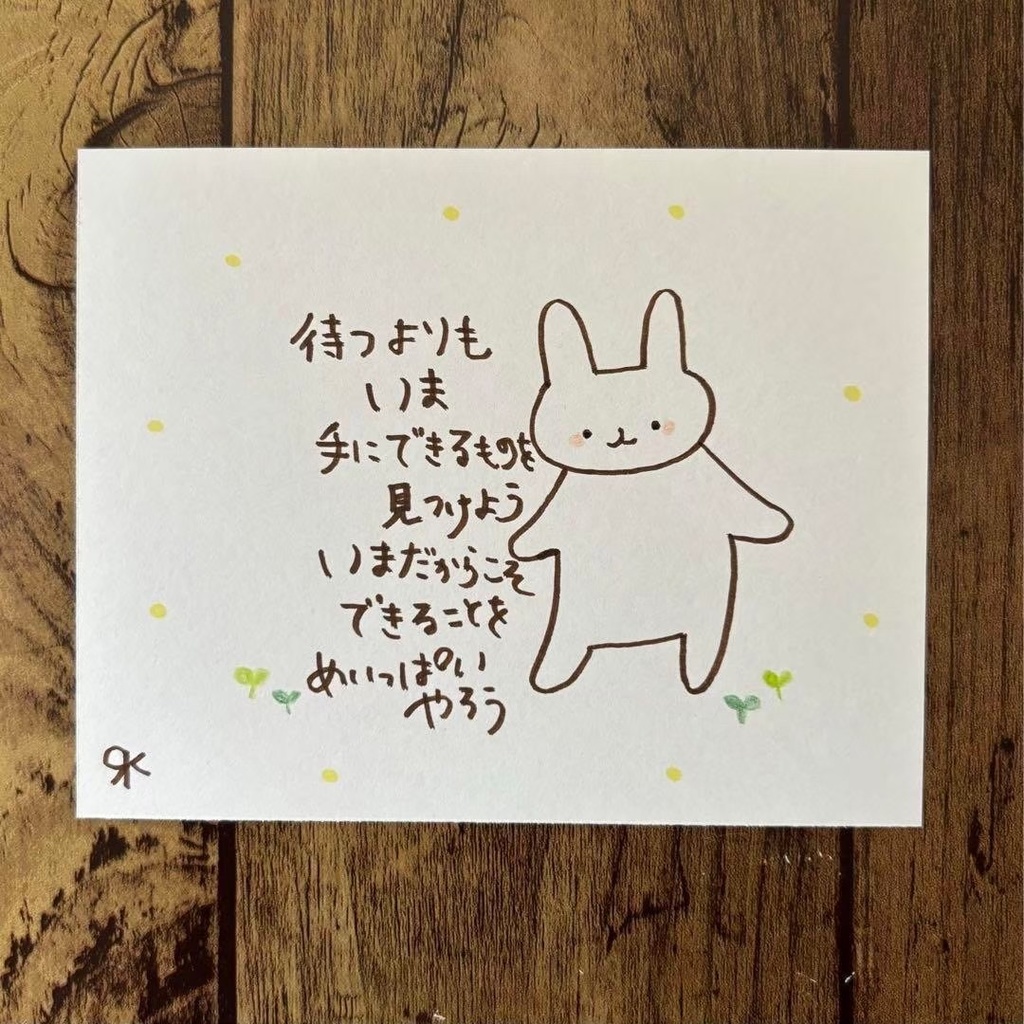 待つよりも
いま
手にできるものを
見つけよう
いまだからこそ
できることを
めいっぱい
やろう